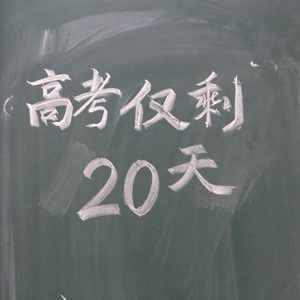 高考仅剩
20天